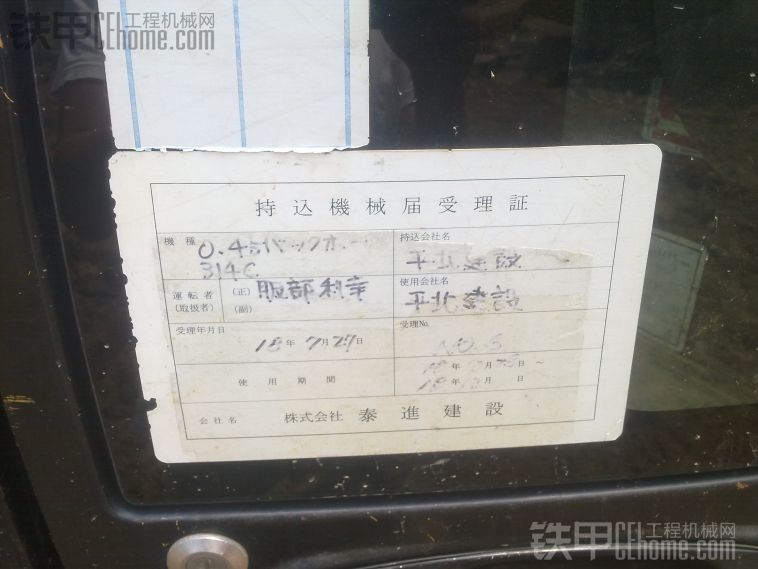 铁甲CEHome.com
工程机械网
持込機械届受理証
機種
0.45バックホー
314C
持込会社名
運転者
(取扱者)
(正)
(副)
服部利幸
使用会社名
平北建設
受理年月日
18年7月27日
受理No.
NO.5
使用期間
18年
月
日~
18年
月
日
会社名
株式会社 泰進建設
铁甲CEHome.com
工程机械网